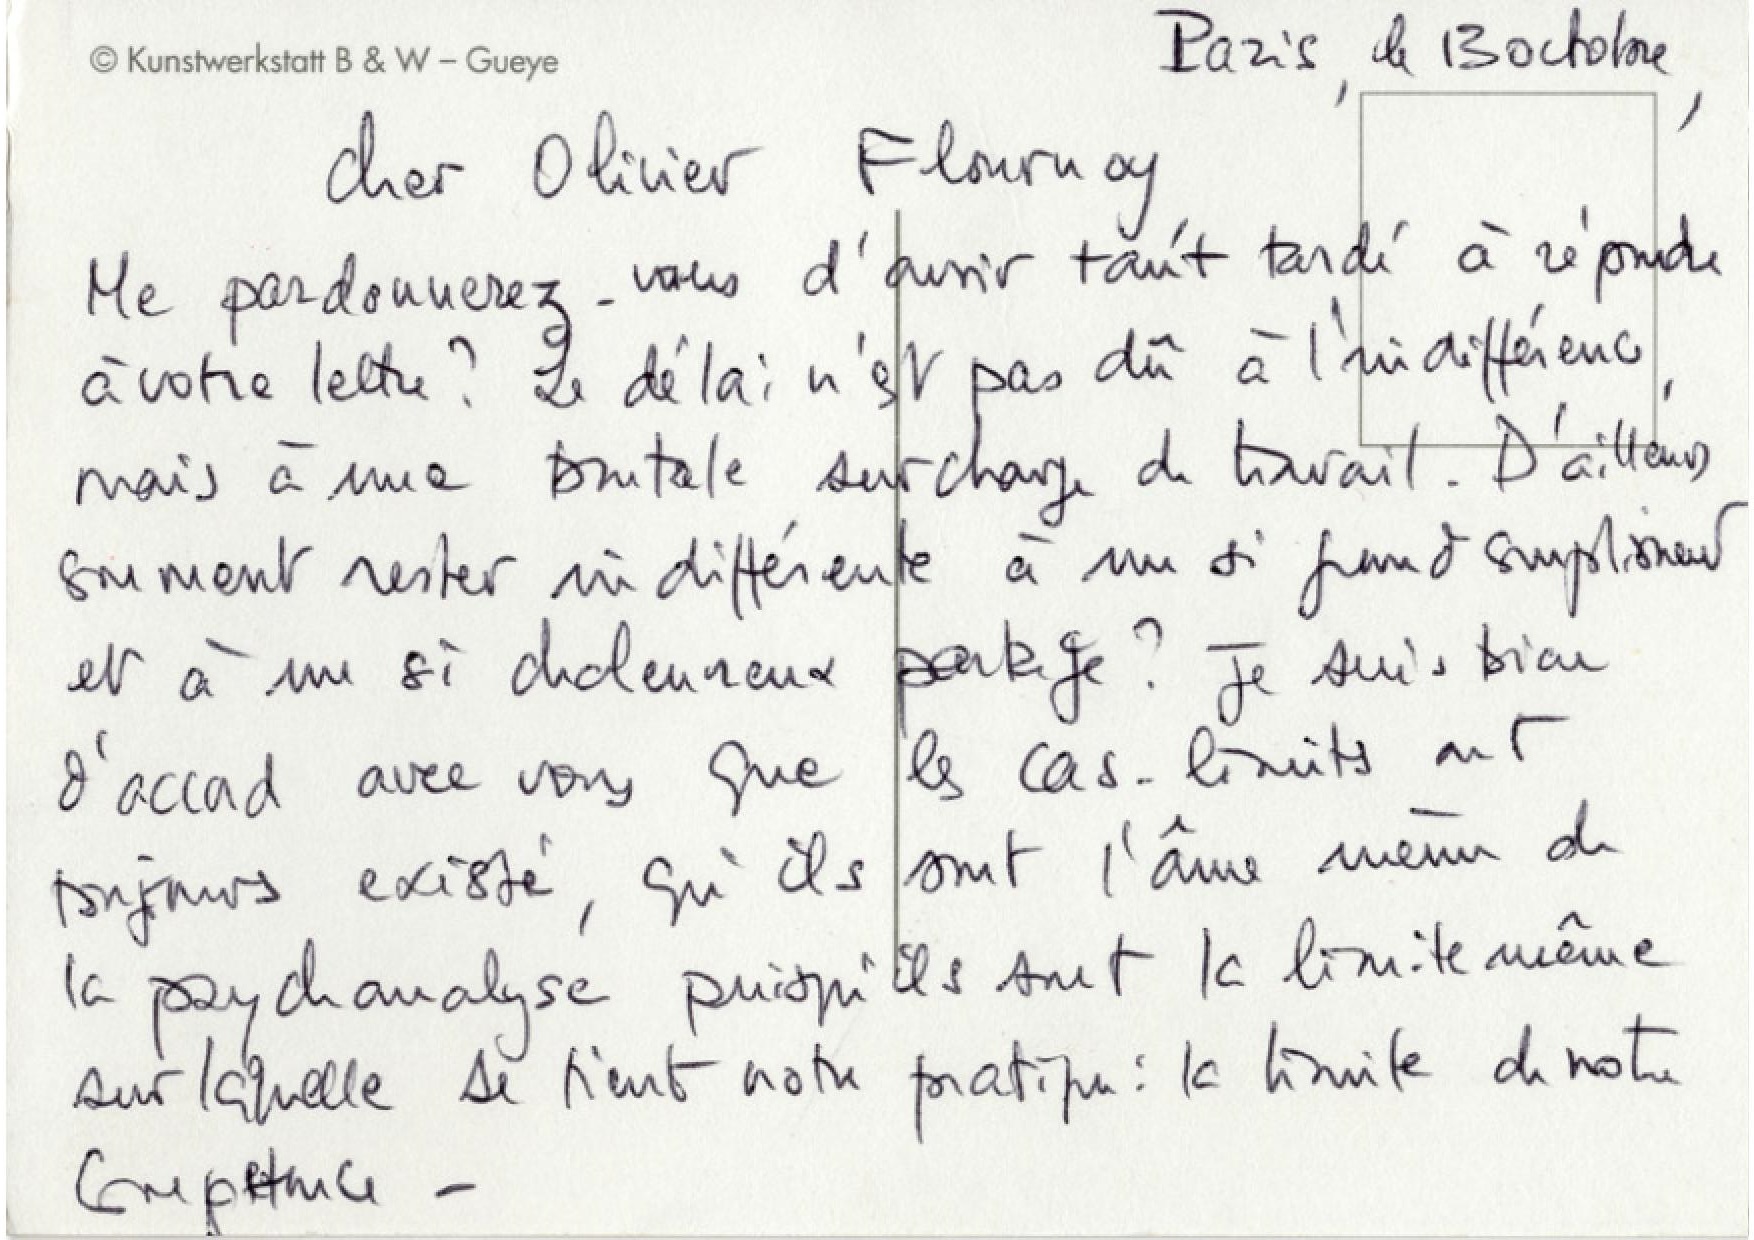 © Kunstwerkstatt B & W – Gueye
Paris, le 13 octobre,
Cher Olivier Flournoy
Me pardonnerez-vous d'avoir tant tardé à répondre
à votre lettre? Le délai n'est pas dû à l'indifférence,
mais à une brutale surcharge de travail. D'ailleurs
comment rester indifférente à un si grand compliment
et à un si chaleureux partage? Je suis bien
d'accord avec vous que les cas-limites ont
toujours existé, qu'ils sont l'âme même de
la psychanalyse puisqu'ils sont la limite même
sur laquelle se tient notre pratique: la limite de notre
compétence –